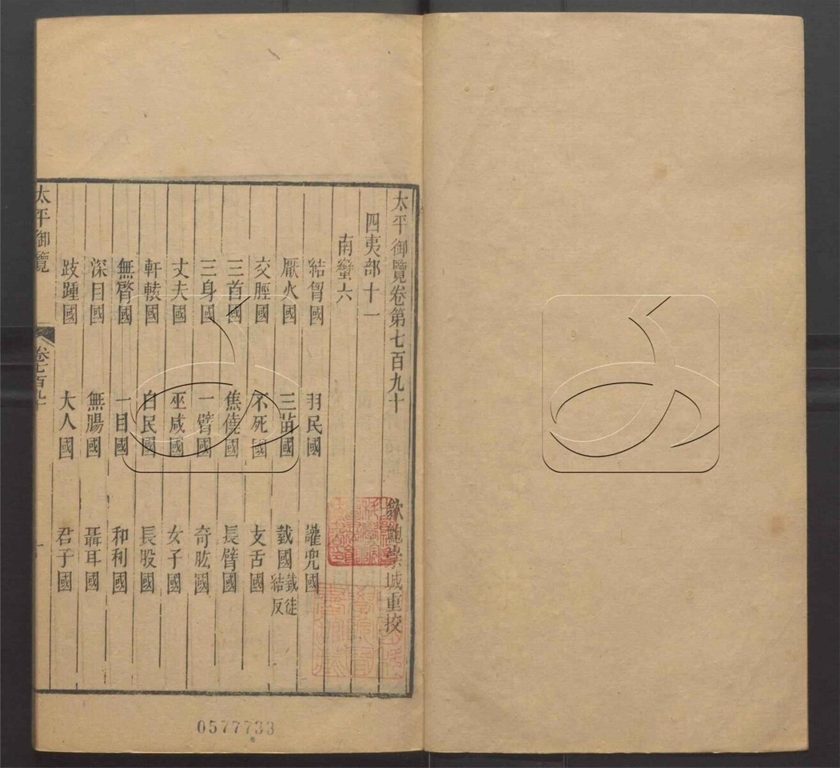 太平御覽卷第七百九十
歙鮑崇城重挍
四夷部十一
南蠻六
結胷國 羽民國 讙兜國
厭火國 三苗國 臷國臷徒結反
交脛國 不死國 支舌國
三首國 焦僥國 長臂國
三身國 一臂國 奇肱國
丈夫國 巫咸國 女子國
軒轅國 白民國 長股國
無𦜹國 一目國 和利國
深目國 無腸國 聶耳國
跂踵國 大人國 君子國
太平御覽 卷七百九十 一
0577733